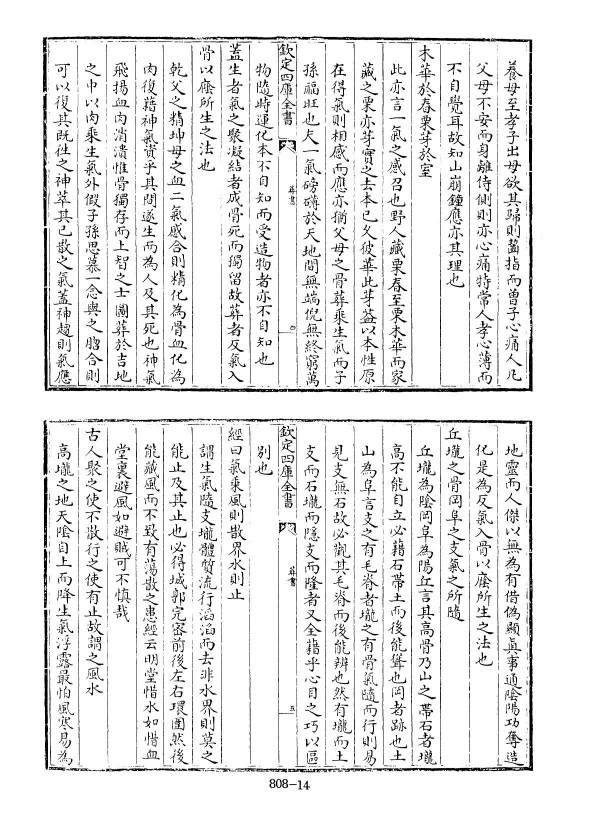 養母至孝子出母欲其歸則齧指而曾子心痛人凡
父母不安而身離侍側則亦心痛特常人孝心薄而
不自覺耳故知山崩鐘應亦其理也
木華於春栗芽於室
此亦言一氣之感召也野人藏栗春至栗木華而家
藏之栗亦芽實之去本已久彼華此芽葢以本性原
在得氣則相感而應亦猶父母之骨葬乗生氣而子
孫福旺也夫一氣磅礴於天地間無端倪無終窮萬
欽定四庫全書
葬書
四
物隨時運化本不自知而受造物者亦不自知也
葢生者氣之聚凝結者成骨死而獨留故葬者反氣入
骨以廕所生之法也
乾父之精坤母之血二氣感合則精化為骨血化為
肉復藉神氣資乎其間遂生而為人及其死也神氣
飛揚血肉消潰惟骨獨存而上智之士圖葬於吉地
之中以内乗生氣外假子孫思慕一念與之脗合則
可以復其既徃之神萃其已散之氣蓋神趨則氣應
地靈而人傑以無為有借偽顯真事通陰陽功奪造
化是為反氣入骨以廕所生之法也
丘壠之骨岡阜之支氣之所隨
丘壠為陰岡阜為陽丘言其高骨乃山之帶石者壠
高不能自立必藉石帶土而後能聳也岡者跡也土
山為阜言支之有毛脊者壠之有骨氣隨而行則易
見支無石故必觀其毛脊而後能辨也然有壠而土
支而石壠而隱支而隆者又全藉乎心目之巧以區
欽定四庫全書
葬書
五
别也
經曰氣乗風則散界水則止
謂生氣隨支壠體質流行滔滔而去非水界則莫之
能止及其止也必得城郭完密前後左右環圍然後
能藏風而不致有蕩散之患經云明堂惜水如惜血
堂裏避風如避賊可不慎哉
古人聚之使不散行之使有止故謂之風水
高壠之地天陰自上而降生氣浮露最怕風寒易為
808-14